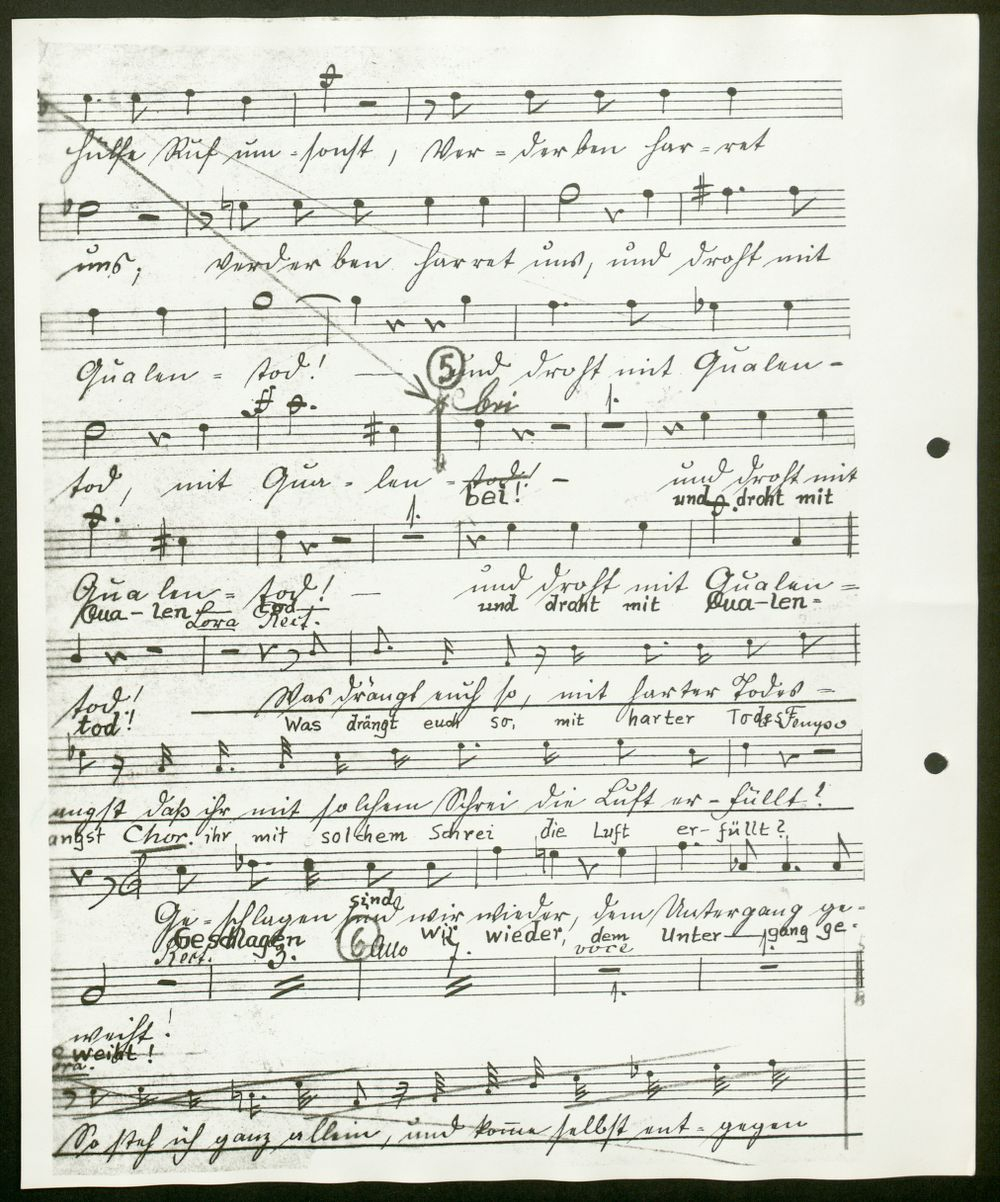 hülfe Ruf um-sonst, Ver-derben har-ret
uns; Verderben harret uns, und droht mit
Qualen-tod! — und droht mit Qualen-
5
bei
1.
tod, mit Qua-len-tod! - und droht mit
bei! und droht mit
1.
Qualen-tod! — und droht mit Qualen-
Qua-len-tod und droht mit Qua-len-
Lora Rect.
tod! Was drängt euch so, mit harter Todes-
tod! Was drängt euch so, mit harter Todes
Tempo
angst daß ihr mit solchem Schrei die Luft er-füllt?
angst Chor. ihr mit solchem Schrei die Luft er-füllt?
Ge-schlagen sind wir wieder, dem Untergang ge-
sind
Geschlagen wir wieder, dem Unter-gang ge-
Rect. 3. 6 voce
1.
weiht!
weiht!
So steh ich ganz allein, und komme selbst ent-gegen